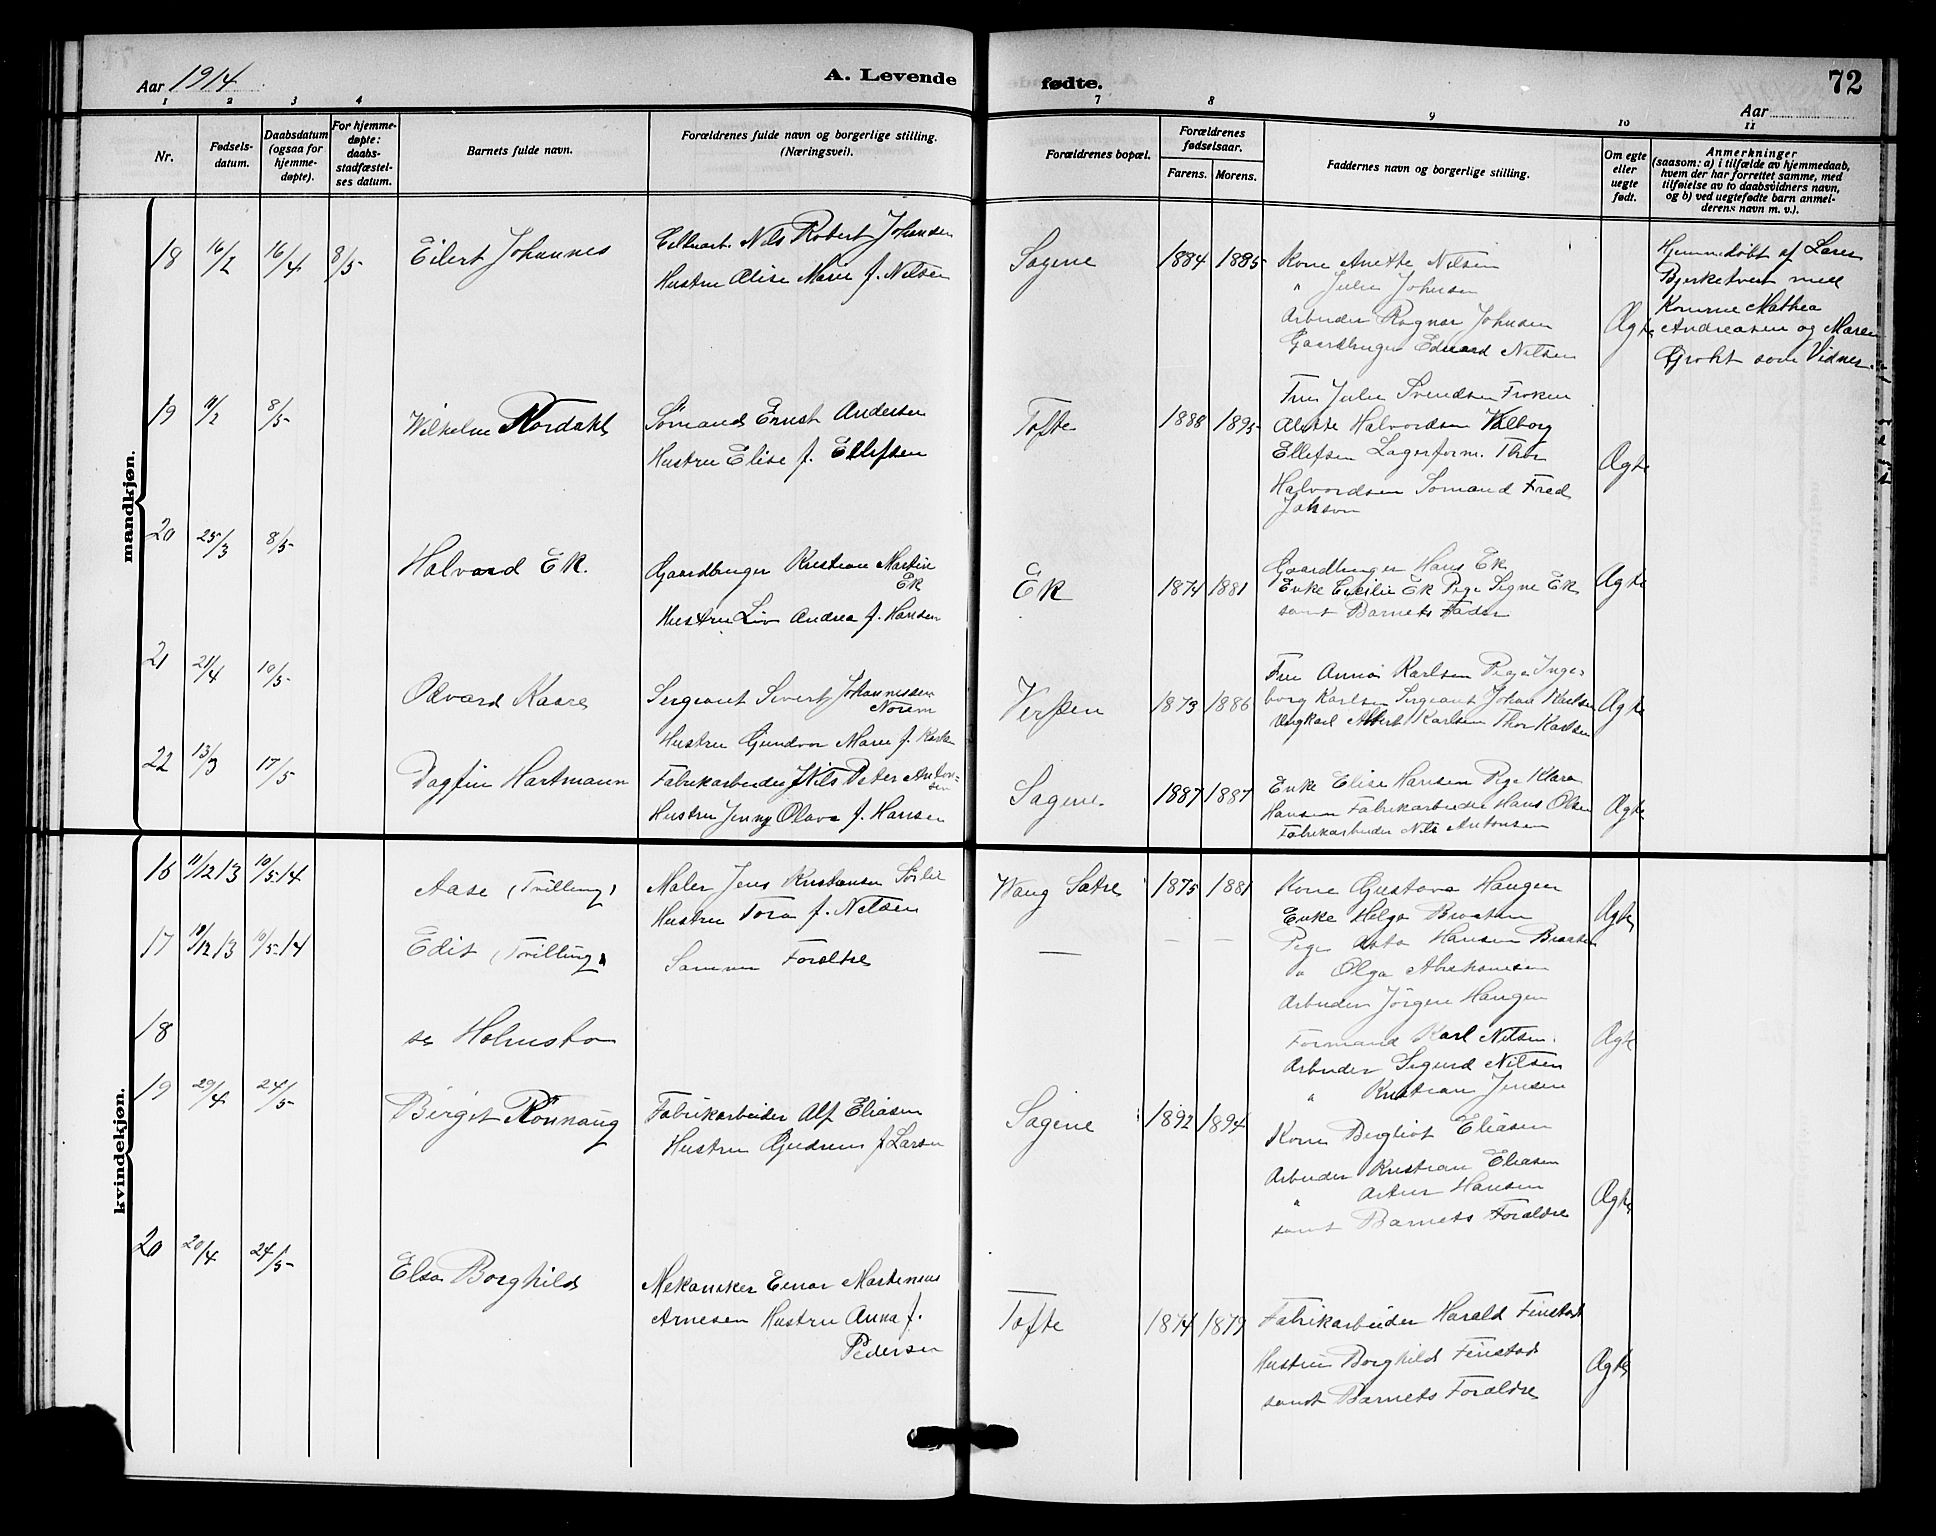 Aar 1914
A. Levende
fødte.
72
Aar
1 2 3 4
7 8 9 10 11
Nr.
Fødselsdatum.
Daabsdatum (ogsaa for hjemmedøpte).
For hjemmedøpte: daabsstadfæstelses datum.
Barnets fulde navn.
Forældrenes fulde navn og borgerlige stilling. (Næringsvei).
Forældrenes bopæl.
Forældrenes fødselsaar.
Farens. Morens.
Faddernes navn og borgerlige stilling.
Om egte eller uegte født.
Anmerkninger
(saasom: a) i tilfælde av hjemmedaab,
hvem der har forrettet samme, med
tilføielse av to daabsvidners navn,
og b) ved uegtefødte barn anmelderens navn m. v.).
mandkjøn.
18 16/2 16/4 8/5 Eilert Johannes
Nils Robert Johansen
Hustru Alise Marie f. Nilsen
Sagene 1884 1885
Kone Anette Nilsen
" Julie Johnsen
Arbeider Ragnar Johnsen
Gaardbruger Edvard Nilsen
Ægte
Hjemmedøbt af Lærer
Bjerketvedt med
Konerne Mathea
Andreasen og Maren
Grobt som Vidner.
19 11/2 8/5 Wilhelm Nordahl
Sømand Ernst Andersen
Hustru Elise f. Ellefsen
Tofte 1888 1895
Fru Julie Svendsen Frøken
Alette Halvordsen Valborg
Ellefsen Lagerform. Thor
Halvordsen Sømand Fred
Johson
Ægte
20 25/3 8/5 Halvard Ek.
Gaardbruger Kristian Martin
Ek
Hustru Liv Andrea f. Hansen
Ek 1874 1881
Gaardbruger Hans Ek
Enke Cecilie Ek Pige Signe Ek
samt Barnets Fader
Ægte
21 21/4 10/5 Odvard Kaare
Sergeant Sivert Johannessen
Norem
Hustru Gundvor Marie f. Karlsen
Verpen 1873 1886
Fru Anna Karlsen Pige Inge-
borg Karlsen Sergeant Johan Karlsen
Ungkarl Albert Karlsen Thor Karlsen
Ægte
22 13/3 17/5 Dagfin Hartmann
Fabrikarbeider Nils Peter Anton-
sen
Hustru Jenny Olava f. Hansen
Sagene. 1887 1887
Enke Elise Hansen Pige Klara
Hansen Fabrikarbeider Hans Olsen
Fabrikarbeider Nils Antonsen
Ægte
kvindekjøn.
16 11/12 13 10/5 14 Aase (Tvilling)
Maler Jens Kristensen Solli
Hustru Tora f. Nilsen
Wang Sætre 1875 1881
Kone Gustava Haugen
Enke Helga Braaten
Pige Hansen Braaten
" Olga Abrahamsen
Arbeider Jörgen Haugen
Formand Karl Nilsen.
Arbeider Sigurd Nilsen
" Kristian Jensen
Ægte
17 11/12 13 10/5 14 Edit (Tvilling)
Samme Forældre
— — —
18 se Holmsbo
Ægte
19 29/4 24/5 Birgit Rönnaug
Fabrikarbeider Alf Eliasen
Hustru Gudrun f Larsen
Sagene 1892 1894
Kone Bergliot Eliasen
Arbeider Kristian Eliasen
" Artur Hansen
samt Barnets Forældre
Ægte
20 20/4 24/5 Elsa Borghild
Mekaniker Einar Martinius
Arnesen Hustru Anna f.
Pedersen
Tofte 1874 1879
Fabrikarbeider Harald Finstad
Hustru Borghild Finstad
samt Barnets Forældre
Ægte